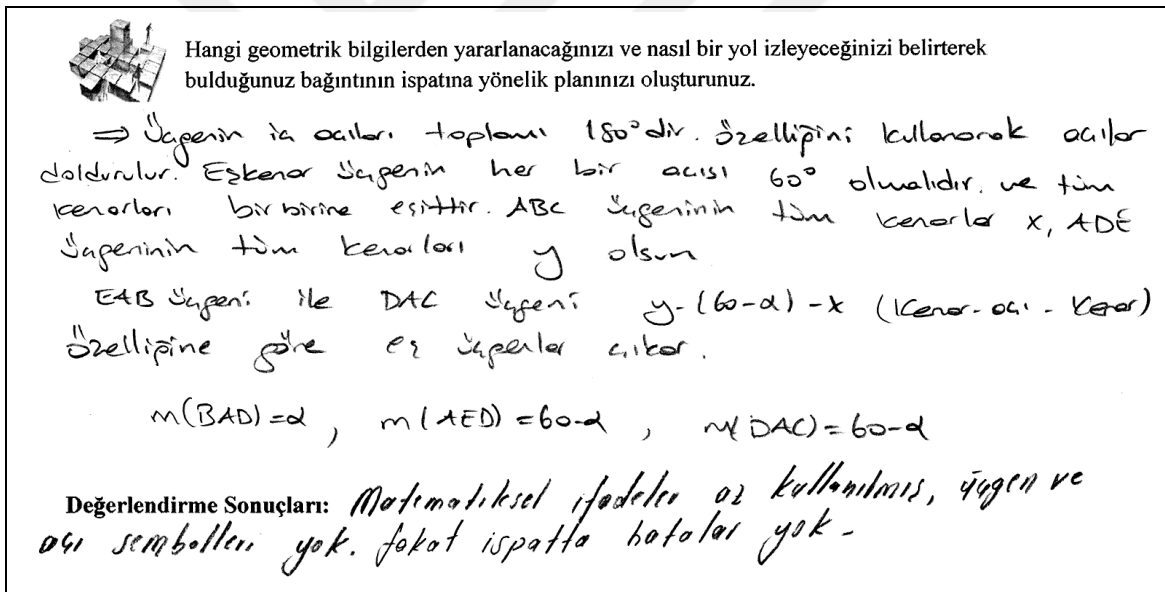 Hangi geometrik bilgilerden yararlanacağınızı ve nasıl bir yol izleyeceğinizi belirterek
bulduğunuz bağıntının ispatına yönelik planınızı oluşturunuz.
⇒ Üçgenin iç açıları toplamı 180° dir. özelliğini kullanarak açılar
doldurulur. Eşkenar üçgenin her bir açısı 60° olmalıdır. ve tüm
kenarları birbirine eşittir. ABC üçgeninin tüm kenarlar x, ADE
üçgeninin tüm kenarları y olsun
EAB üçgeni ile DAC üçgeni y-(60-α)-x (Kenar-açı-Kenar)
özelliğine göre eş üçgenler çıkar.
m(BAD)=α, m(AED)=60-α, m(DAC)=60-α
Değerlendirme Sonuçları: Matematiksel ifadeler az kullanılmış, üçgen ve
açı sembolleri yok. fakat ispatta hatalar yok.